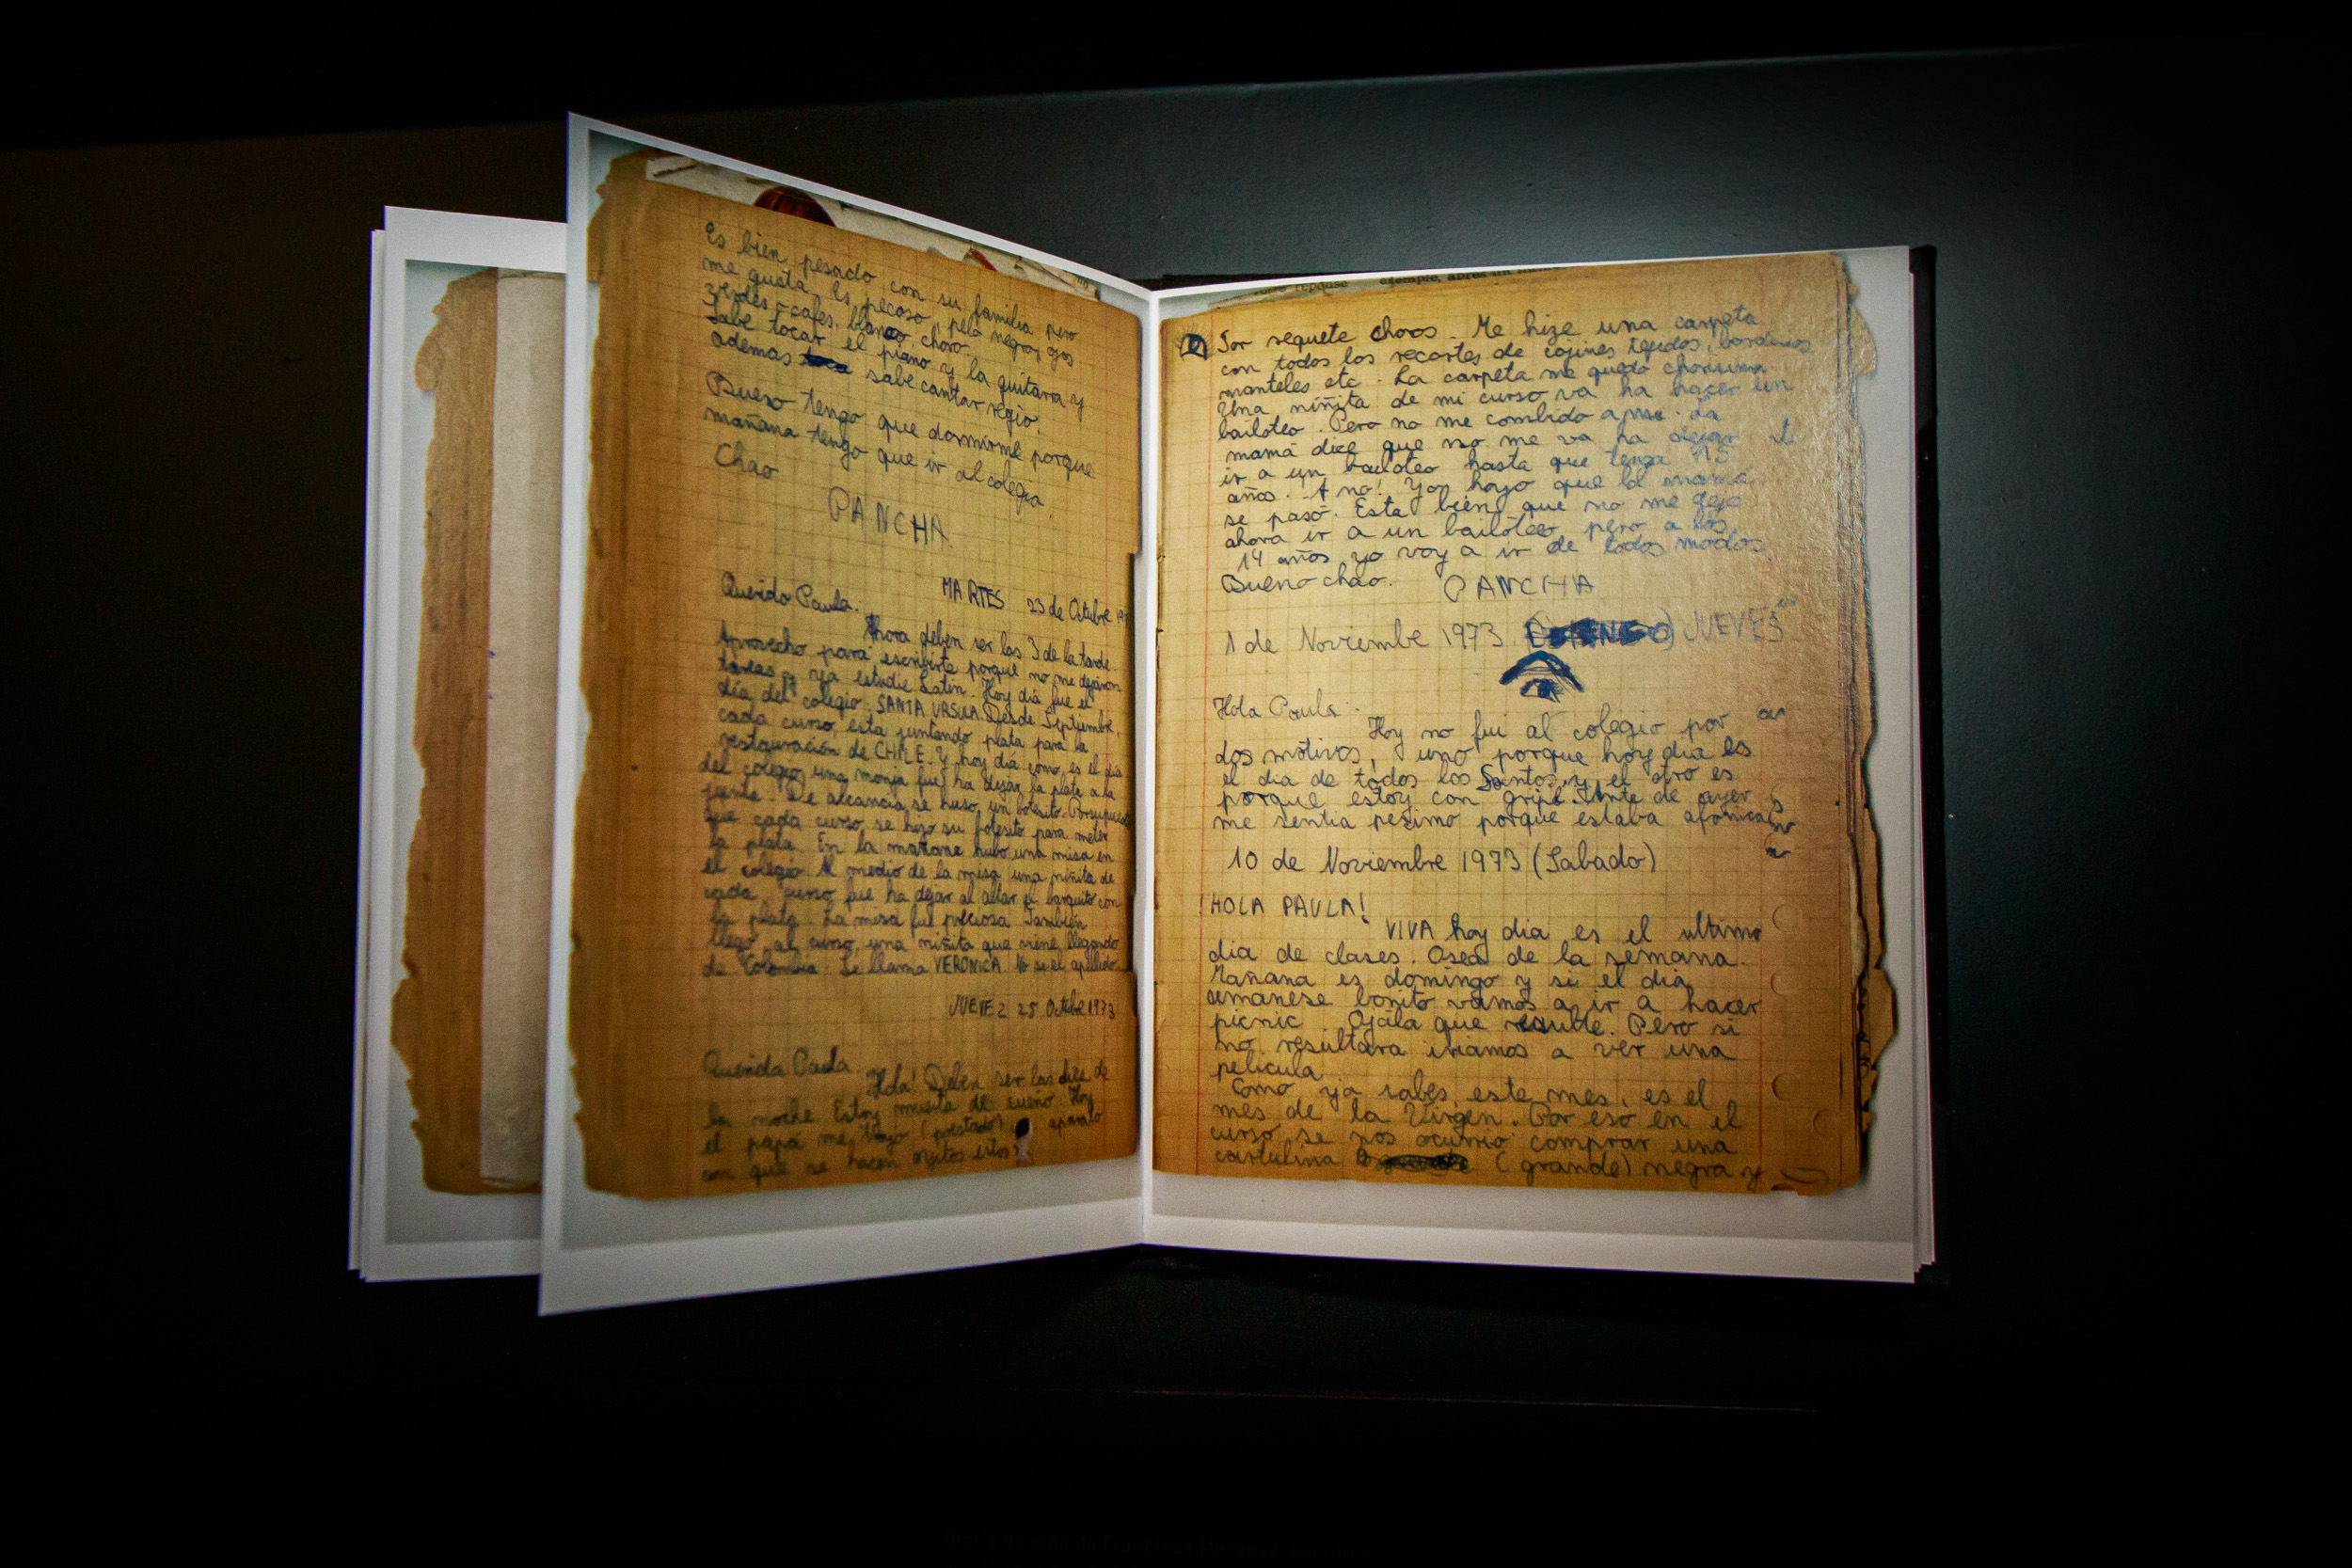 Es bien pesado con su familia pero
me gusta. Es pecoso, pelo negro, ojos
verdes-cafes, blanco, choro.
Sabe tocar el piano y la guitarra y
ademas sabe cantar regio.
Bueno tengo que dormirme porque
mañana tengo que ir al colegio.
Chao
PANCHA
MARTES 23 de Octubre 19
Querida Paula.
Ahora deben ser las 3 de la tarde
Aprovecho para escribirte porque no me dejaron
tareas y ya estudie Latin. Hoy dia fue el
dia del colegio SANTA URSULA. Desde Septiembre,
cada curso, esta juntando plata para la
restauración de CHILE. Y hoy dia como es el dia
del colegio una monja fue ha dejar la plata a la
junta. De alcancia se huso un botesito. Porsupuesto
que cada curso se hizo su botesito para meter
la plata. En la mañana hubo una misa en
el colegio. Al medio de la misa una niñita de
cada curso fue ha dejar al altar el barquito con
la plata. La misa fue preciosa. También
llego al curso una niñita que viene llegando
de Colombia. Se llama VERONICA. No se el apellido.
JUEVEZ 25 Octubre 1973
Querida Paula.
Hola! Deben ser las dies de
la noche. Estoy muerta de sueño. Hoy
el papá me trajo (prestado) aparato
con que se hacen estos
Son requete choros. Me hize una carpeta
con todos los recortes de cojines tejidos, bordados
manteles etc. La carpeta me quedo
Una niñita de mi curso va ha hacer un
bailoteo. Pero no me combido a mi. La
mamá dice que no me va ha dejar
ir a un bailoteo hasta que tenga 15
años. A no! Yo hayo que la mamá
se pasó. Esta bien que no me deje
ahora ir a un bailoteo, pero a los
14 años yo voy a ir de todos modos
Bueno chao. PANCHA
1 de Noviembre 1973 JUEVES
Hola Paula.
Hoy no fui al colegio por
dos motivos, uno porque hoy dia es
el dia de todos los Santos, y el otro es
porque estoy con gripe. Ante de ayer
me sentia pesimo porque estaba afonica
10 de Noviembre 1973 (Sabado)
HOLA PAULA!
VIVA hoy dia es el ultimo
dia de clases. Osea de la semana.
Mañana es domingo y si el dia
amanese bonito vamos a ir a hacer
picnic. Ojala que resulte. Pero si
no resultara iriamos a ver una
pelicula
Como ya sabes, este mes, es el
mes de la Virgen. Por eso en el
curso se nos ocurrio comprar una
cartulina (grande) negra y